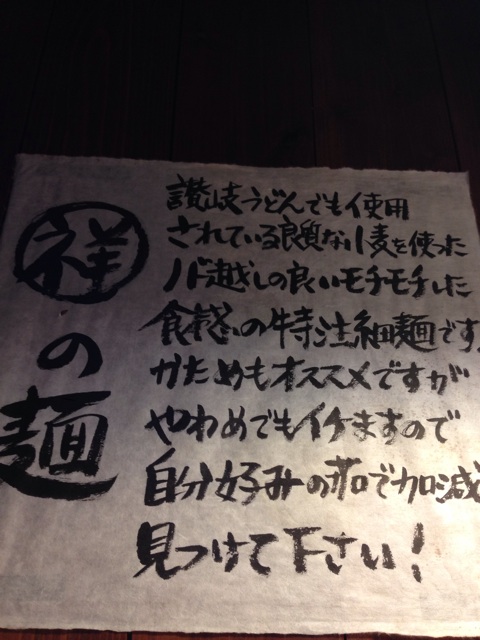 祥
の
麺
讃岐うどんでも使用
されている良質な小麦を使った
ノド越しの良いモチモチした
食感の特注細麺です
かためもオススメですが
やわめでもイケますので
自分好みの茹で加減
見つけて下さい!